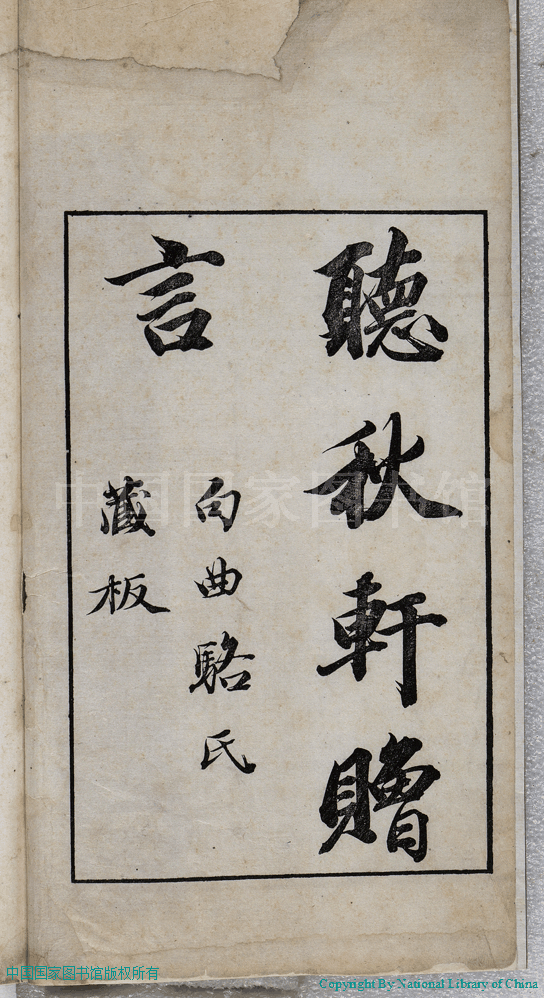 聽秋軒贈
言
句曲駱氏
藏板
中国国家图书馆
中国国家图书馆版权所有
Copyright By National Library of China